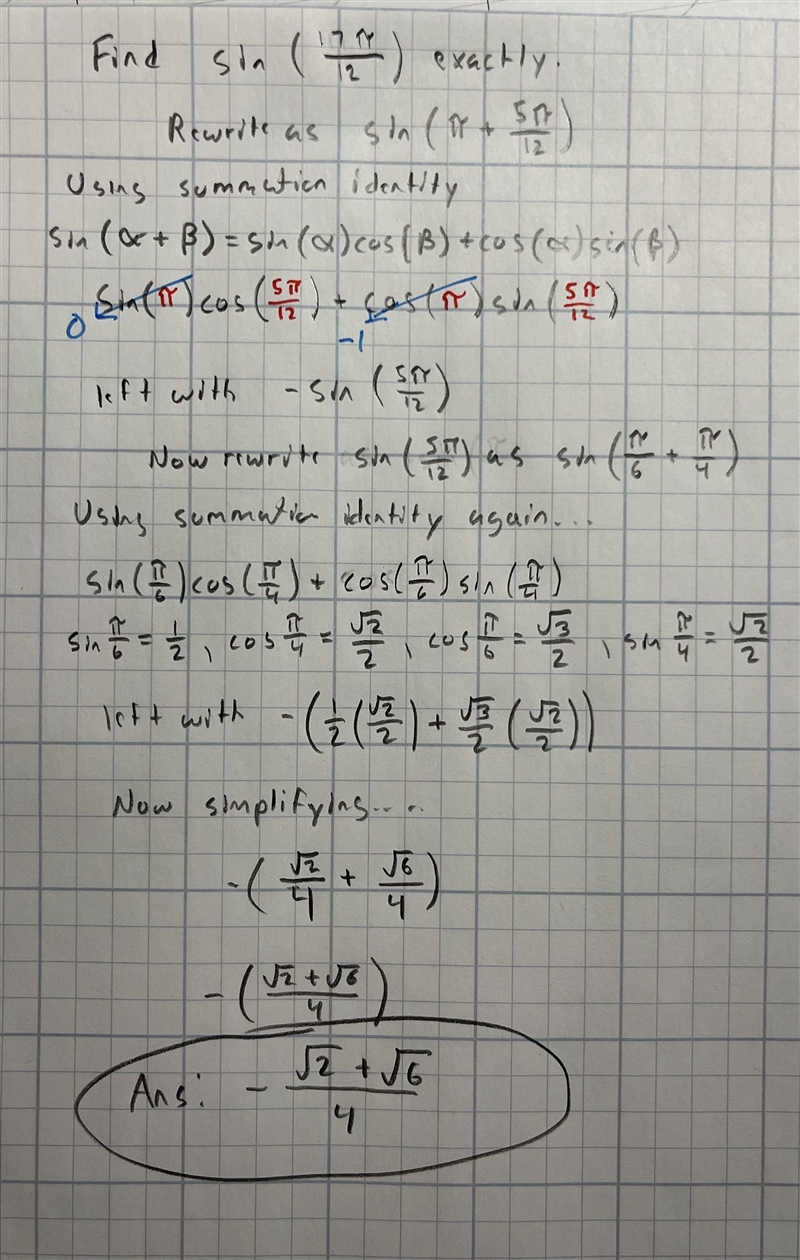 Find sin(17π/12) exactly.
Rewrite as sin(π + 5π/12)
Using summation identity
sin(α + β) = sin(α)cos(β) + cos(α)sin(β)
sin(π)cos(5π/12) + cos(π)sin(5π/12)
0 -1
left with -sin(5π/12)
Now rewrite sin(5π/12) as sin(π/6 + π/4)
Using summation identity again...
sin(π/6)cos(π/4) + cos(π/6)sin(π/4)
sin π/6 = 1/2, cos π/4 = √2/2, cos π/6 = √3/2, sin π/4 = √2/2
left with -(1/2(√2/2) + √3/2(√2/2))
Now simplifying....
-(√2/4 + √6/4)
-((√2 + √6)/4)
Ans: - (√2 + √6)/4